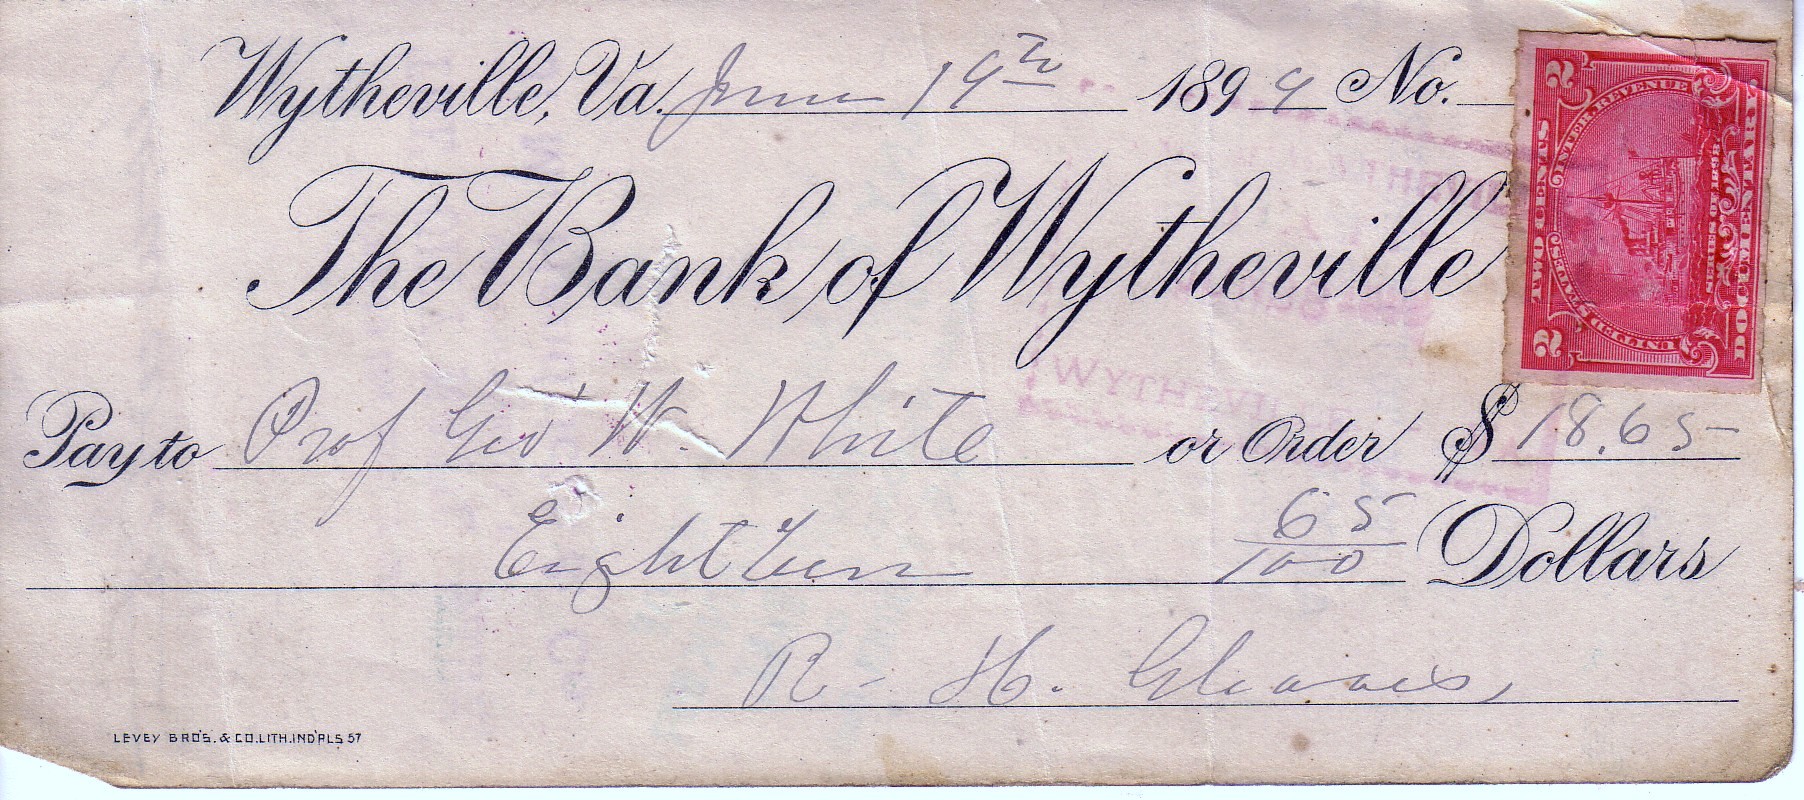 Wytheville, Va. June 19th 1899 No.
The Bank of Wytheville
Pay to Prof Geo W. White or Order $18.65
Eighteen 65/100 Dollars
R. H. Gleaves
LEVEY BRO'S. & CO. LITH. IND'PLS 57
2 TWO CENTS 2
UNITED STATES INTER. REVENUE
SERIES OF 1898
DOCUMENTARY
WYTHEVILLE